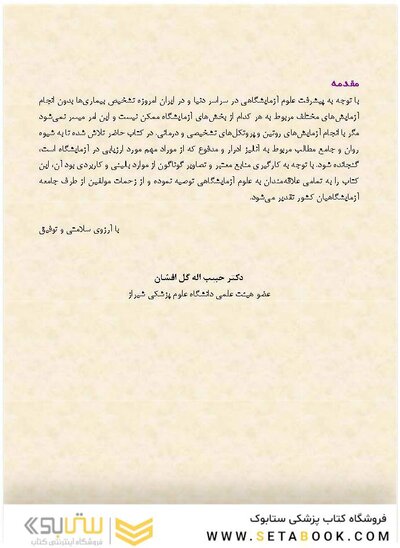 مقدمه
با توجه به پیشرفت علوم آزمایشگاهی در سراسر دنیا و در ایران امروزه تشخیص بیماری‌ها بدون انجام
آزمایش‌های مختلف مربوط به هر کدام از بخش‌های آزمایشگاه ممکن نیست و این امر میسر نمی‌شود
مگر با انجام آزمایش‌های روتین و پروتکل‌های تشخیصی و درمانی. در کتاب حاضر تلاش شده تا به شیوه
روان و جامع مطالب مربوط به آنالیز ادرار و مدفوع که از موراد مهم مورد ارزیابی در آزمایشگاه است،
گنجانده شود. با توجه به کارگیری منابع معتبر و تصاویر گوناگون از موارد بالینی و کاربردی بودن آن، این
کتاب را به تمامی علاقه‌مندان به علوم آزمایشگاهی توصیه نموده و از زحمات مولفین از طرف جامعه
آزمایشگاهیان کشور تقدیر می‌شود.
با آرزوی سلامتی و توفیق
دکتر حبیب اله گل افشان
عضو هیئت علمی دانشگاه علوم پزشکی شیراز
فروشگاه کتاب پزشکی ستابوک
WWW.SETABOOK.COM
ستابوک
فروشگاه اینترنتی کتاب